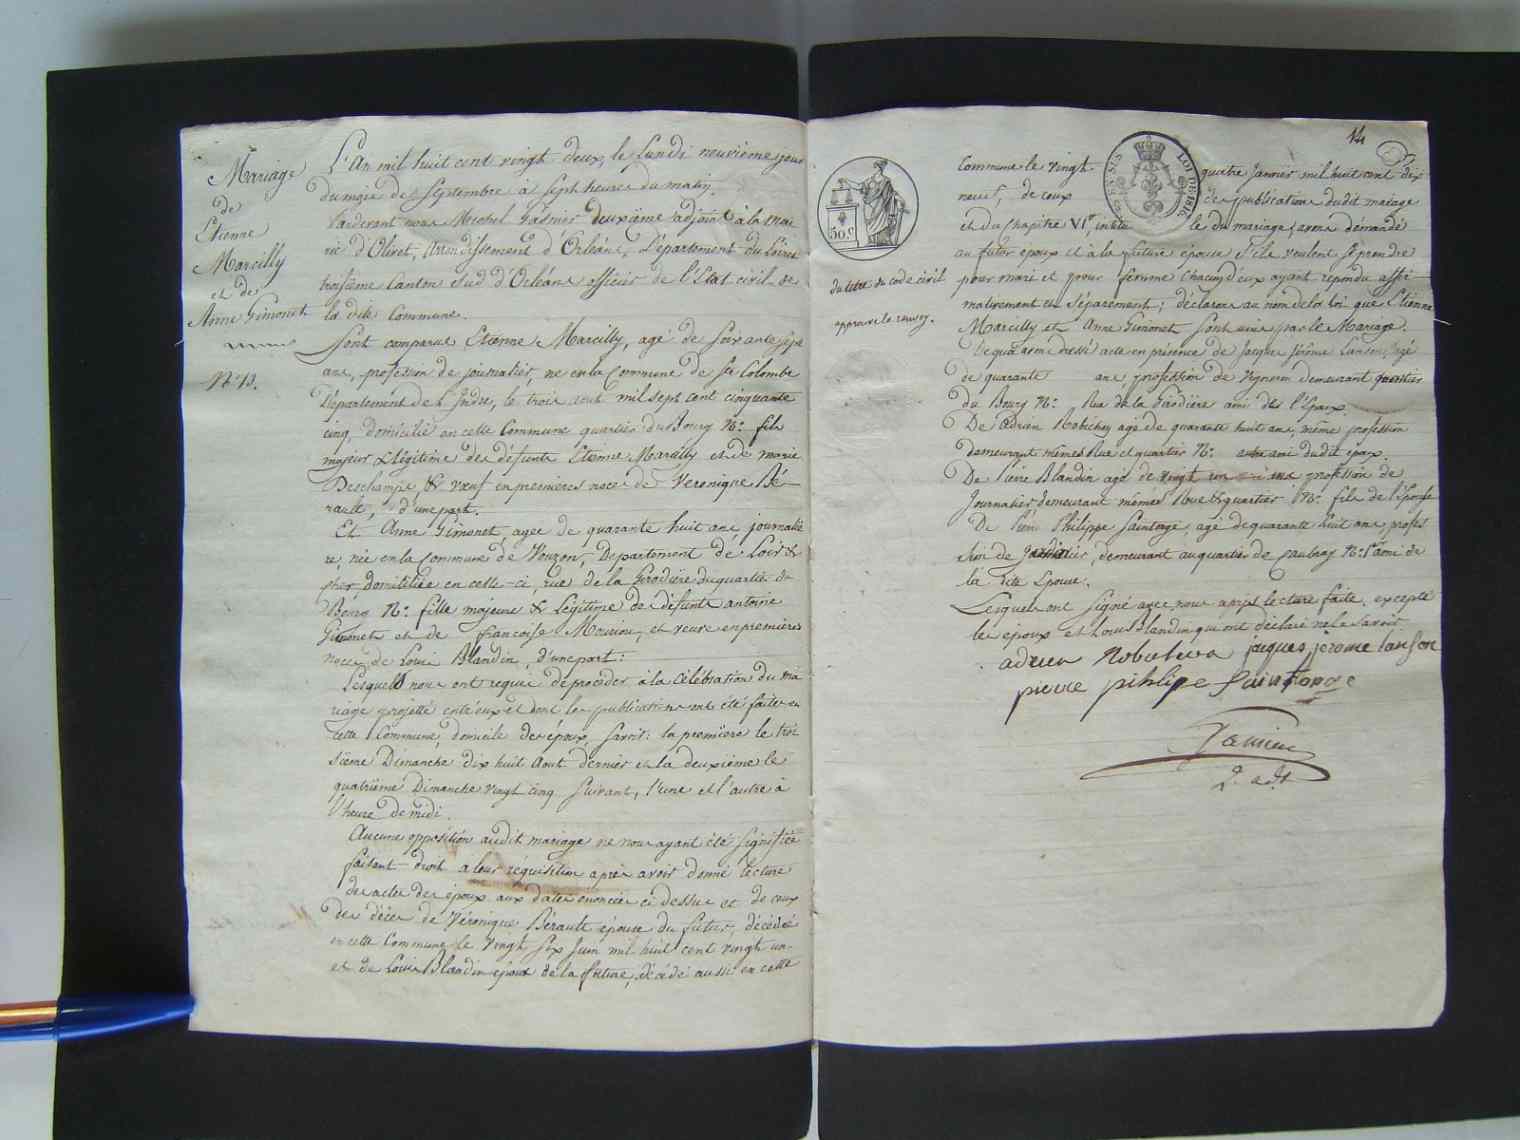 Mariage
de
Etienne
Marcilly
et de
Anne Gimonet
N° 13.
L'An mil huit cent vingt deux, le Lundi neuvième jour
du mois de Septembre à Sept heures du matin.
Pardevant nous Michel Gasnier deuxième adjoint à la mai
rie d'Olivet, Arrondissement d'Orléans, Département du Loiret
troisième Canton sud d'Orléans officier de l'Etat civil de
la dite Commune.
Sont comparus Etienne Marcilly, agé de soixante sept
ans, profession de journalier, né en la Commune de Ste Colombe
Département de l'Indre, le trois aout mil sept cent cinquante
cinq, domicilié en cette Commune quartier du Bourg N°. fils
majeur & légitime des défunts Etienne Marcilly et de marie
Deschamps, & veuf en premières noces de Véronique Bé-
rault, d'une part.
Et Anne Gimonet, agée de quarante huit ans, journaliè
re, née en la Commune de Vouzon, Département de Loir &
cher domiciliée en celle-ci, rue de la Girodière du quartier du
Bourg N°. fille majeure & légitime de défunts antoine
Gimonet et de françoise Mouriou, et veuve en premières
noces de Louis Blandin, d'une part:
Lesquels nous ont requis de procéder à la Célébration du ma
riage projetté entr'eux et dont les publications ont été faites en
cette Commune, domicile des époux, savoir: la première le troi
sième Dimanche dix huit Aout dernier et la deuxième le
quatrième Dimanche vingt cinq suivant, l'une et l'autre à
l'heure de midi.
Aucune opposition audit mariage ne nous ayant été signifiée
faisant droit a leur réquisition après avoir donné lecture
des actes des époux aux dates énoncées ci dessus et de ceux
des décès de Véronique Bérault épouse du futur, décédée
en cette Commune le vingt six Juin mil huit cent vingt un
et de Louis Blandin époux de la future, décédé aussi en cette
14
50 C
LOI DE 1816
commune le vingt quatre Janvier mil huit cent dix
neuf, de ceux de publication dudit mariage
et du Chapitre VI, intitu le du mariage, avons démandé
du titre du code civil
approuvé le renvoy.
au futur époux et à la future épouse s'ils veulent se prendre
pour mari et pour femme chacun d'eux ayant répondu affir
mativement et séparement; déclarons au nom de la loi que Etienne
Marcilly et Anne Gimonet sont unis par le Mariage.
De quoi avons dressé acte en présence de Jacques Jérôme Lanson, agé
de quarante ans, profession de vigneron demeurant quartier
du Bourg N°. Rue de la Girodière ami de l'Epoux.
De Adrien Robichon agé de quarante huit ans, même profession
demeurant mêmes Rue et quartier N°. ami dudit époux.
De Blandin agé de vingt un ans profession de
Journalier demeurant mêmes Rue & quartier N°. fils de l'épouse
De Philippe Saintonge, agé de quarante huit ans profes
sion de demeurant au quartier de N°. ami de
la dite Epouse.
Lesquels ont signé avec nous après lecture faite, excepté
les époux et Louis Blandin qui ont déclaré ne le savoir
adrien jacques jerome lanson
pierre pihlipe Saintonge
2e adt